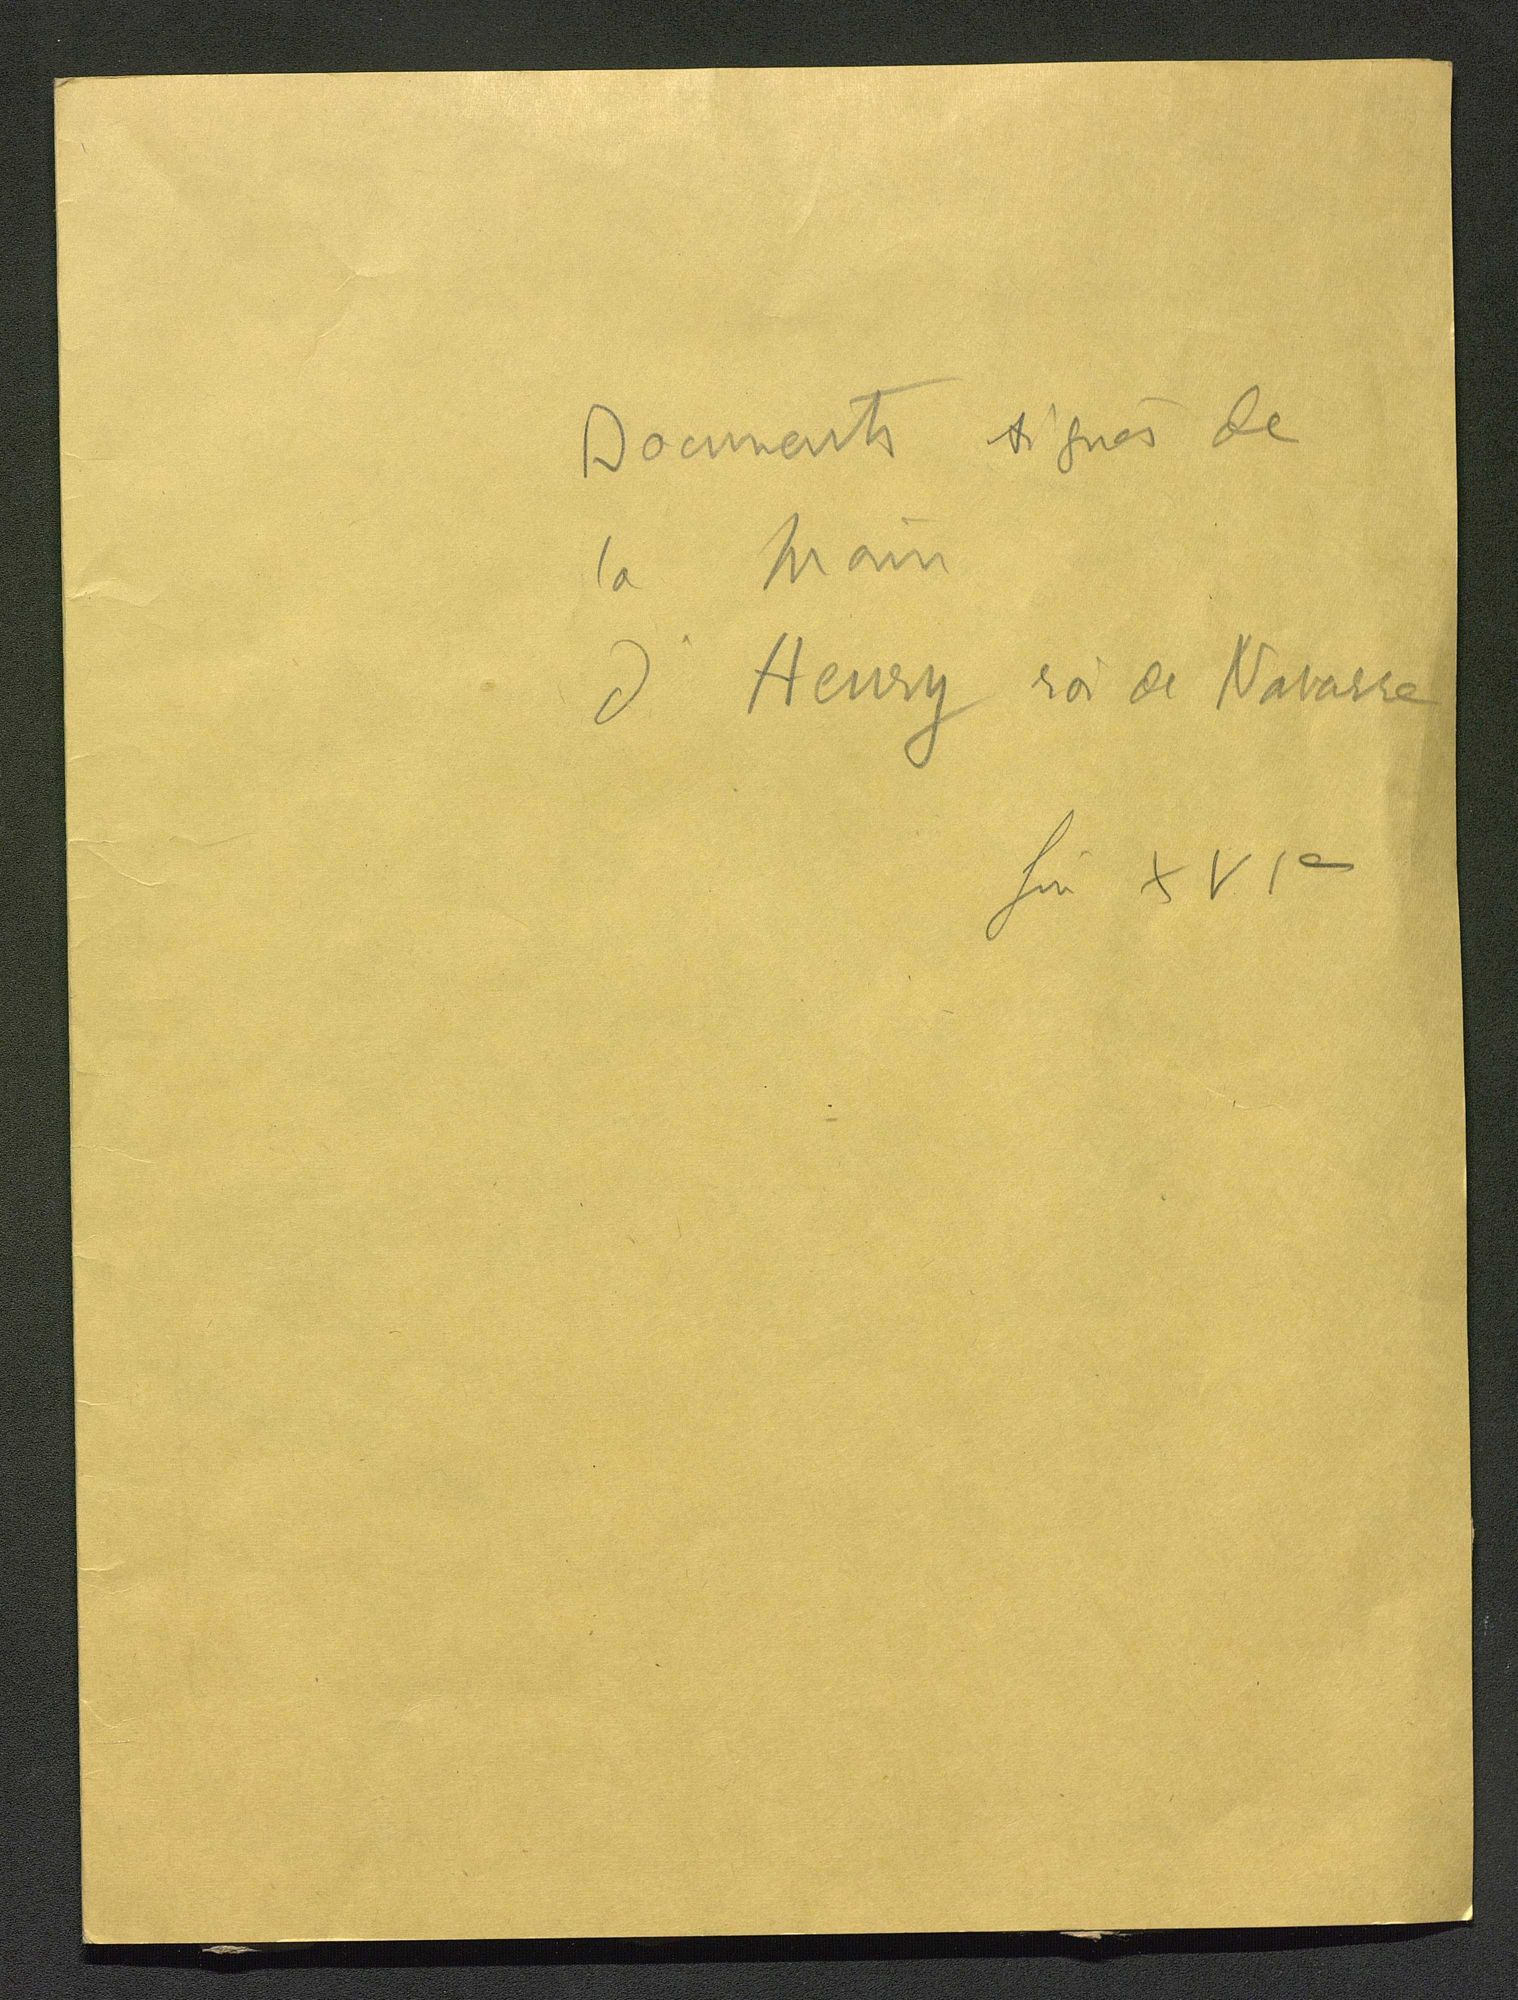 Documents signés de
la main
d' Henry roi de Navarre
fin XVIe